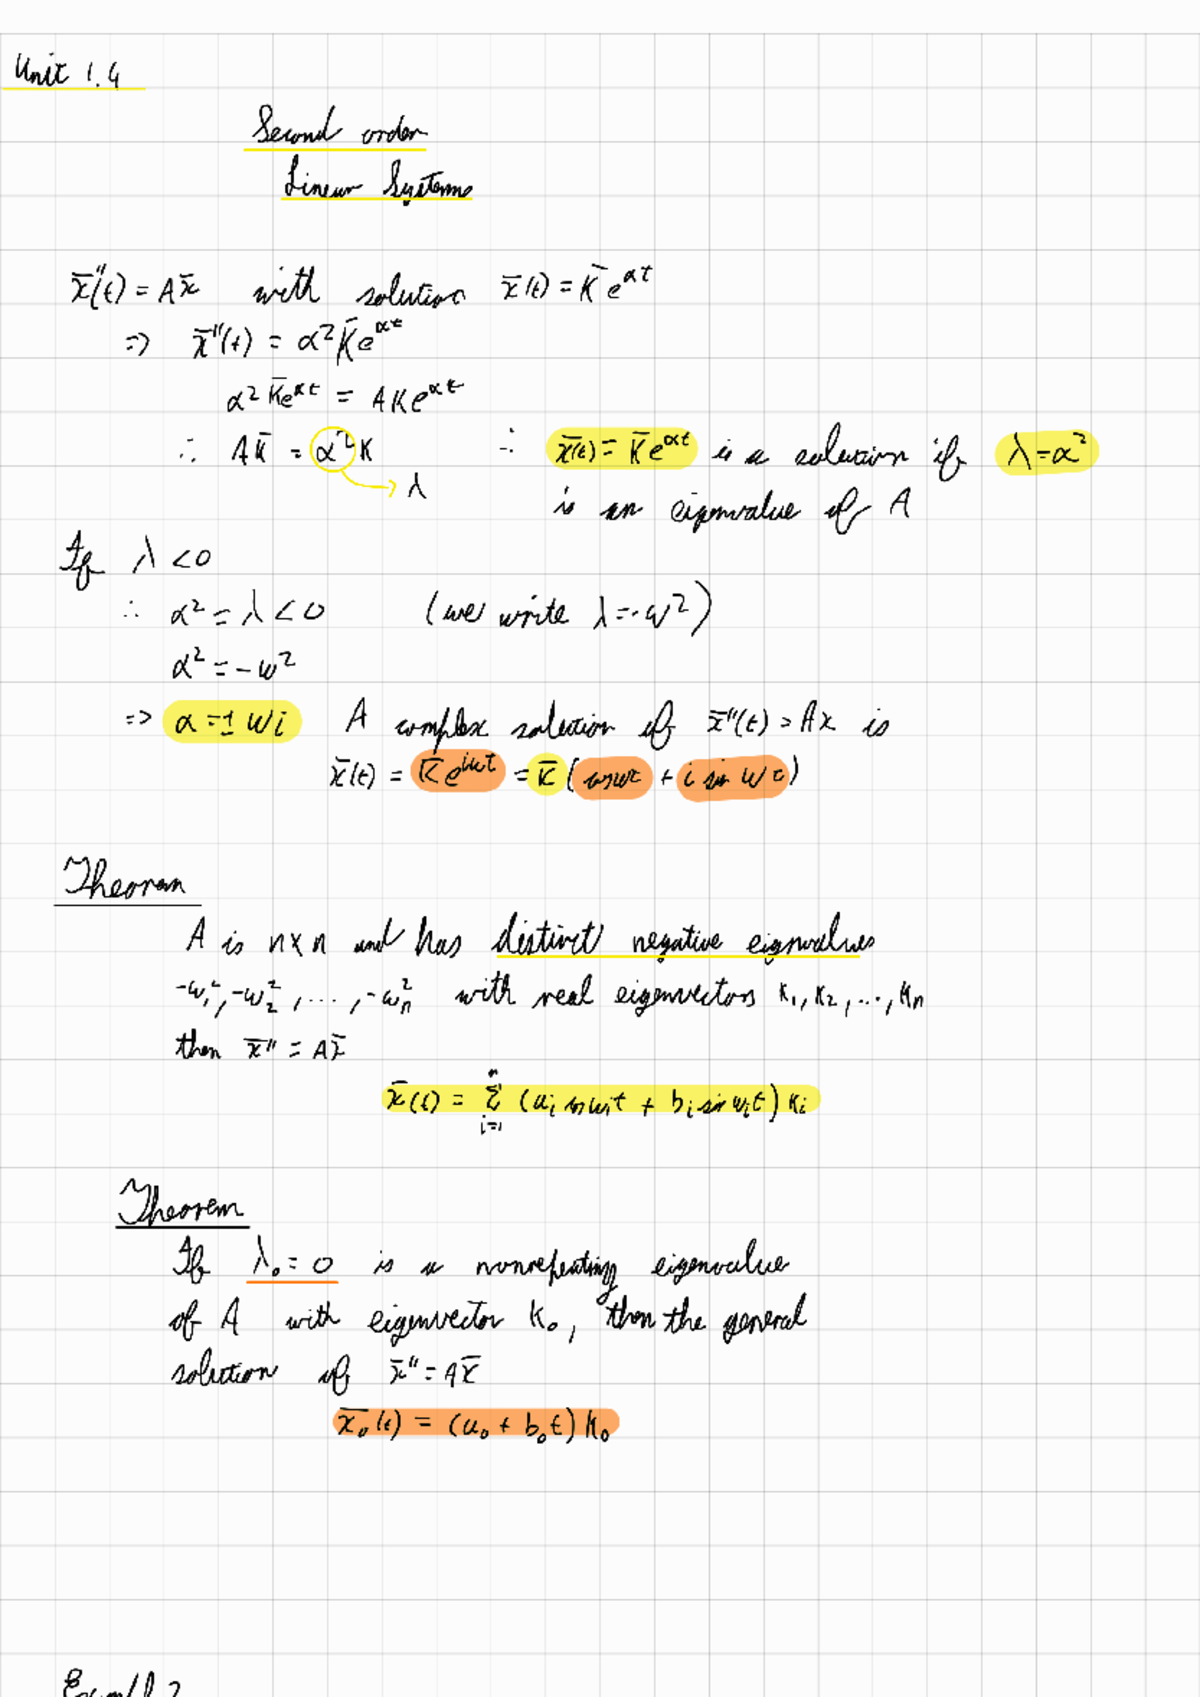 Unit 1.4
Second order
Linear Systems
x̄''(t) = Ax̄ with solution x̄(t) = K̄e^{αt}
=> x̄''(t) = α²K̄e^{αt}
α²K̄e^{αt} = AKe^{αt}
∴ AK̄ = α²K ∴ x̄(t) = K̄e^{αt} is a solution if λ=α²
→ λ
is an eigenvalue of A
If λ<0
∴ α² = λ < 0 (we write λ=-w²)
α² = -w²
=> α = ± wi A complex solution of x̄''(t) = Ax is
x̄(t) = K̄e^{iwt} = K̄(cos wt + i sin wt)
Theorem
A is n×n and has distinct negative eigenvalues
-w₁², -w₂², ..., -wₙ² with real eigenvectors K₁, K₂, ..., Kₙ
then x̄'' = Ax̄
x̄(t) = Σ_{i=1}^{n} (aᵢ cos wᵢt + bᵢ sin wᵢt) Kᵢ
Theorem
If λ₀ = 0 is a nonrepeating eigenvalue
of A with eigenvector K₀, then the general
solution of x̄'' = Ax̄
x̄₀(t) = (a₀ + b₀t) K₀